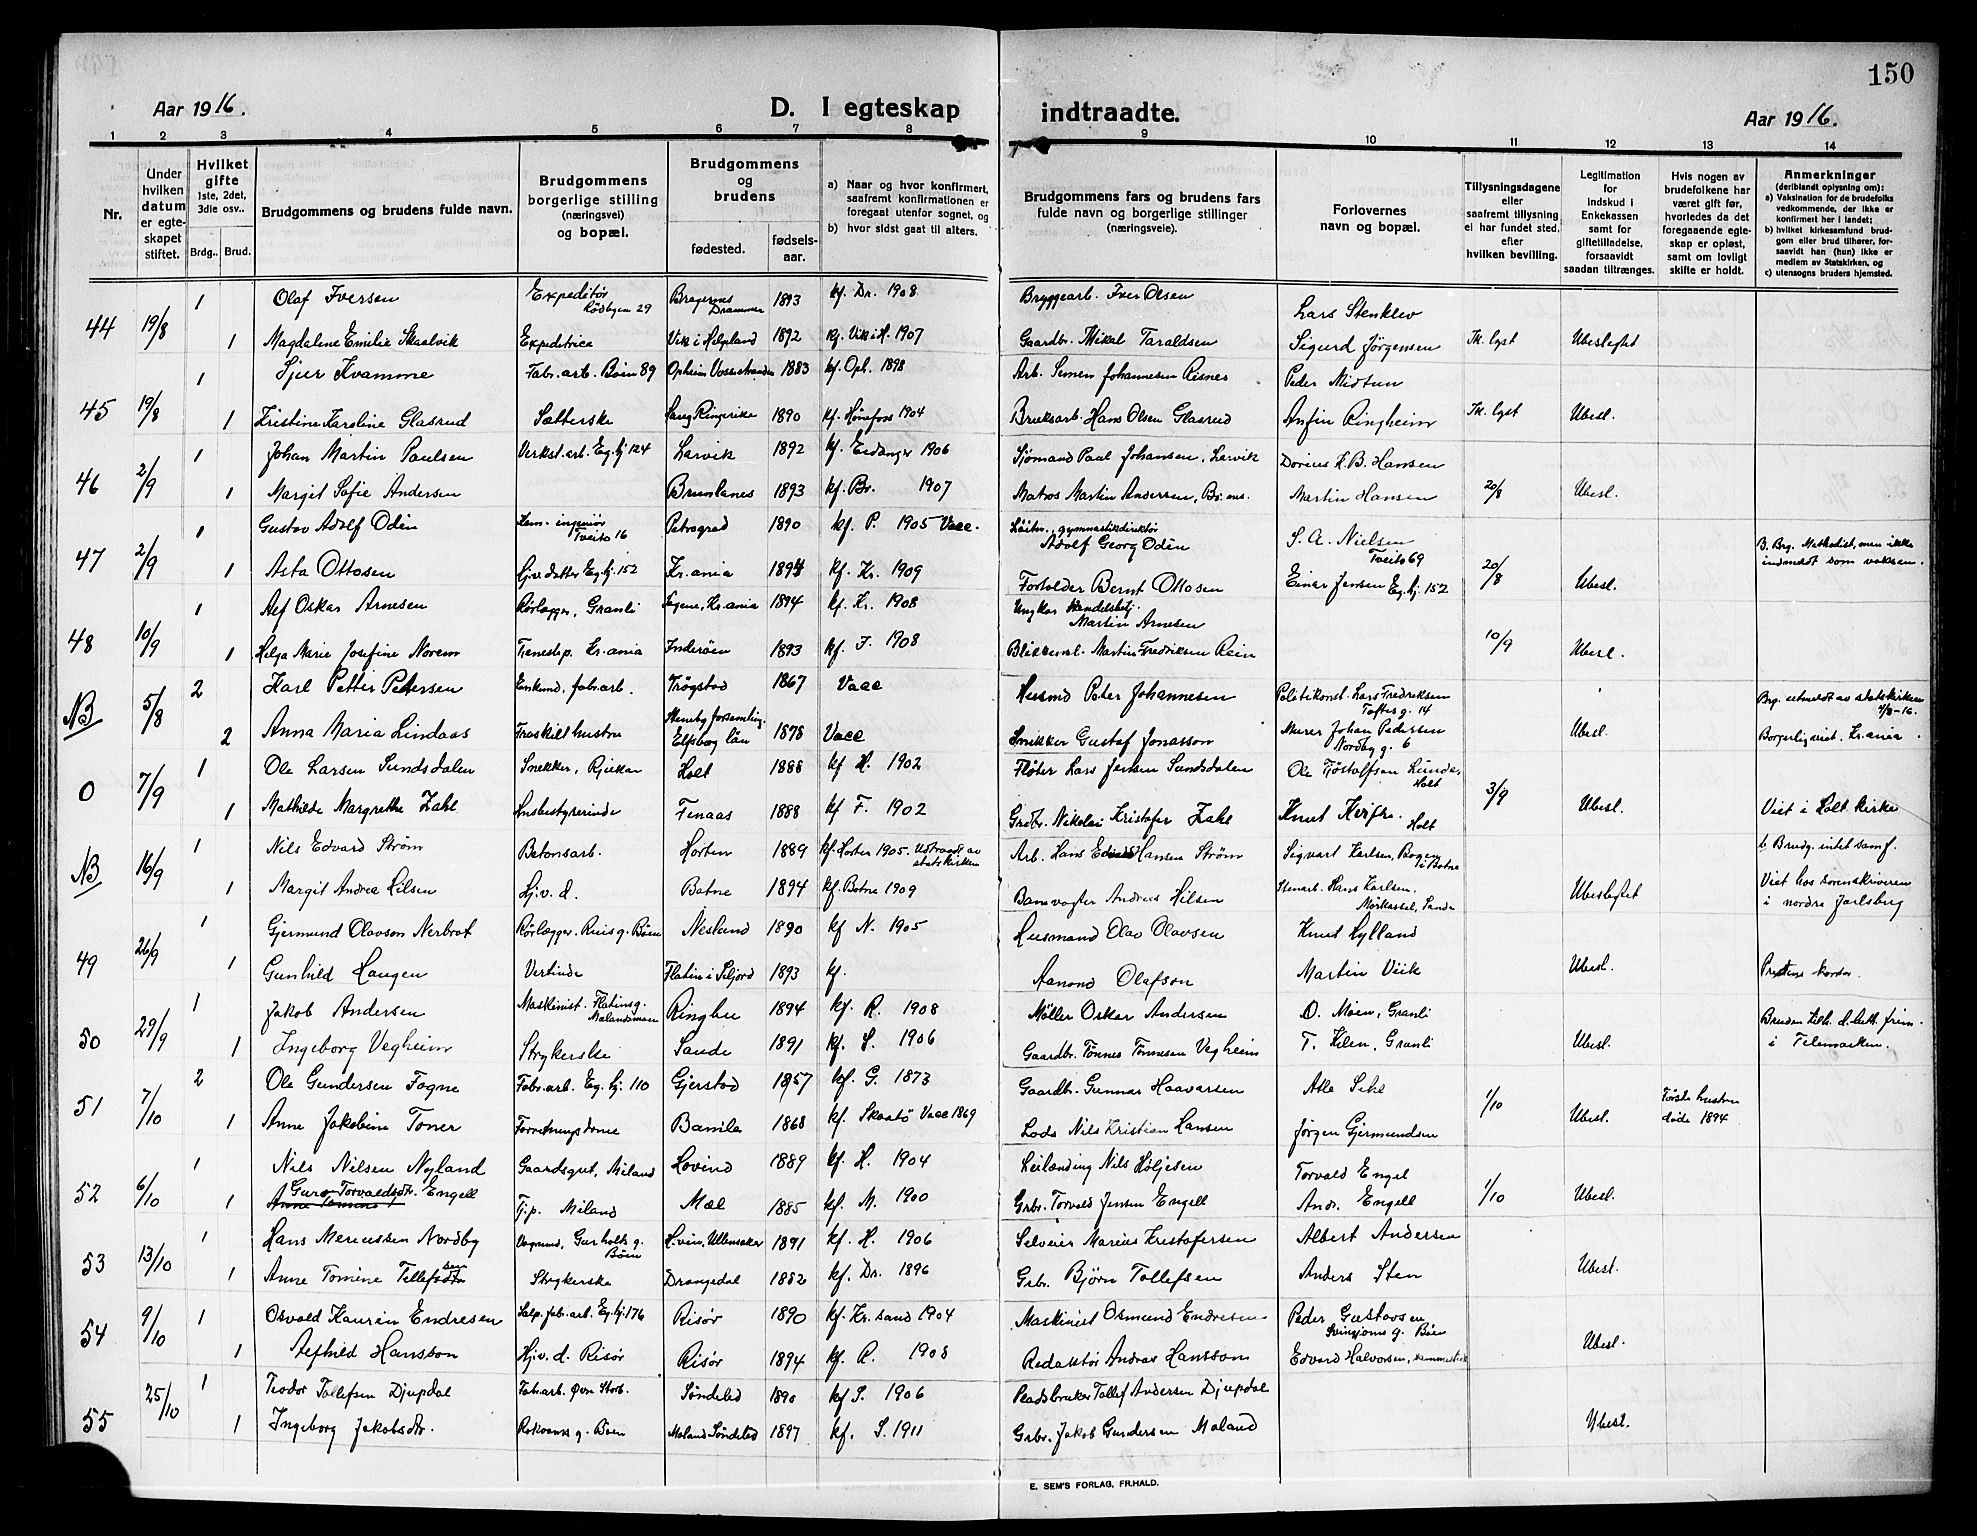 150
Aar 1916.
D. I egteskap indtraadte.
Aar 1916.
1 2 3 4 5 6 7 8 9 10 11 12 13 14
Nr.
Under hvilken datum er egteskapet stiftet.
Hvilket gifte 1ste, 2det, 3die osv..
Brdg..
Brud.
Brudgommens og brudens fulde navn.
Brudgommens borgerlige stilling (næringsvei) og bopæl.
Brudgommens og brudens
fødested.
fødsels-aar.
a) Naar og hvor konfirmert, saafremt konfirmationen er foregaat utenfor sognet, og
b) hvor sidst gaat til alters.
Brudgommens fars og brudens fars fulde navn og borgerlige stillinger (næringsveie).
Forlovernes navn og bopæl.
Tillysningsdagene eller saafremt tillysning ei har fundet sted, efter hvilken bevilling.
Legitimation for indskud i Enkekassen samt for giftetilladelse, forsaavidt saadan tiltrænges.
Hvis nogen av brudefolkene har været gift før, hvorledes da det foregaaende egteskap er opløst, samt om lovligt skifte er holdt.
Anmerkninger (deriblandt oplysning om): a) Vaksination for de brudefolks vedkommende, der ikke er konfirmert her i landet; b) hvilket kirkesamfund brudgom eller brud tilhører, forsaavidt han (hun) ikke er medlem av Statskirken, og c) utensogns bruders hjemsted.
44 19/8 1 Olaf Iversen Expeditør Rødbyen 29 Bragernes Drammen 1893 kf. Dr. 1908 Bryggearb. Iver Olsen Lars Stenklev
1 Magdalene Emilie Skaalvik Expeditrice Vik i Helgeland 1892 kf. Vik i H. 1907 Gaardbr. Mikal Taraldsen Sigurd Jørgensen Tk. lyst Ubesleftet
45 19/8 1 Sjur Kvamme Fabr. arb. Bøen 89 Opheim Vossestranden 1883 kf. Oph. 1898 Arb. Simen Johannesen Risnes Peder Midtun
1 Kristine Karoline Glasrud Sætterske Haug Ringerike 1890 kf. Hønefoss 1904 Bruksarb. Hans Olsen Glasrud Anfin Ringheim Tk. lyst Ubesl.
46 2/9 1 Johan Martin Paulsen Verkst. arb. Eg. hj 124 Larvik 1892 kf. Eidanger 1906 Sjømand Paul Johansen, Larvik Dorius K. B. Hansen
1 Margit Sofie Andersen Brunlanes 1893 kf. Br. 1907 Matros Martin Andersen, Br. nes Martin Hansen 20/8 Ubesl.
47 2/9 1 Gustav Adolf Odén Kem. ingeniør Tveito 16 Petrograd 1890 kf. P. 1905 Vacc. Løitn., gymnastikdirektør Adolf Georg Odén S. A. Nielsen Tveito 69 B. Brg. Methodist, men ikke indmeldt som voksen.
1 Asta Ottosen Hjv. datter Eg. hj. 152 Kr. ania 1894 kf. Kr. 1909 Forholder Bernt Ottosen Einar Jensen Eg. hj. 152 20/8 Ubesl.
48 10/9 1 Alf Oskar Arnesen Rørlægger, Granli Fagene, Kr. ania 1894 kf. Kr. 1908 Ungkar Handelsbetj. Martin Arnesen
1 Helga Marie Josefine Norem Tjenestep. Kr. ania Inderøen 1893 kf. I. 1908 Blikkensl. Martin Fredriksen Rein 10/9 Ubesl.
NB 5/8 2 Karl Petter Pettersen Enkemd, fabr. arb. Trøgstad 1867 Vacc Husmd Peter Johannesen Politikonst. Lars Fredriksen Toftes g. 14 Brg. utmeldt av statskirken 4/8-16.
2 Anna Maria Lindaas Fraskilt hustru Steneby forsamling. Elfsborg län 1878 Vacc Snikker Gustaf Jonasson Murer Johan Pedersen Nordby g. 6 Ubesl. Borgerlig viet. Kr. ania.
0 7/9 1 Ole Larsen Sundsdalen Snekker, Rjukan Holt 1888 kf H. 1902 Fløter Lars Jensen Sundsdalen Ole Tjøstolfsen Lunde, Holt
1 Mathilde Margrethe Zahl Husbestyrerinde Finaas 1888 kf F. 1902 Grdbr. Nikolai Kristofer Zahl Knut Holt 3/9 Ubesl. Viet i Holt kirke
NB 16/9 1 Nils Edvard Strøm Betonsarb. Horten 1889 kf Horten 1905. Udtraadt av statskirken Arb. Hans Edvard Hansen Strøm Sigvart Karlsen, Bogen i Botne b Brudg. intet samf.
1 Margit Andrea Hilsen Hjv. d. Botne 1894 kf. Botne 1909 Banevogter Andreas Hilsen Stenarb. Hans Karlsen. Mørkassel, Sande Ubesleftet Viet hos sorenskriveren i nordre Jarlsberg
49 26/9 1 Gjermund Olavson Nerbrot Rørlægger. Riis g. Bøen Nesland 1890 kf N. 1905 Husmand Olav Olavsen Knut Hylland
1 Gunhild Haugen Vertinde Flatin i Seljord 1893 kf. Aanond Olafson Martin Viik Ubesl. Prestens kontor.
50 29/9 1 Jakob Andersen Maskinist. Flatins g. Mælandsmoen Ringebu 1894 kf. R. 1908 Møller Oskar Andersen O. Moen, Granli Bruden tilh. d. luth. frim.
1 Ingeborg Vegheim Strykerske Saude 1891 kf. S. 1906 Gaardbr. Tønnes Tønnesen Vegheim T. Kilen, Granli Ubesl. i Telemarken.
51 7/10 2 Ole Gundersen Fogne Fabr. arb. Eg. hj. 110 Gjerstad 1857 kf. G. 1873 Gaardbr. Gunnar Haavorsen Atle Første hustru døde 1894
1 Anne Jakobine Toner Forretningsdame Bamle 1868 kf. Skaatø Vacc 1869 Lods Nils Kristian Hansen Jørgen Gjermundsen 1/10 Ubesl.
52 6/10 1 Nils Nilsen Nyland Gaardsgut, Miland Hovind 1889 kf. H. 1904 Leilænding Nils Høljesen Torvald Engel
1 Guro Torvaldsdtr. Engell Tj. p. Miland Mæl 1885 kf. M. 1900 Grbr. Torvald Jensen Engell Andr. Engell 1/10 Ubesl.
53 13/10 1 Hans Meriussen Nordby Vognmd, Gurholts g. Bøen Hovin, Ullensaker 1891 kf. H. 1906 Selveier Marius Kristofersen Albert Andersen
1 Anne Tomine Tellefsen Strykerske Drangedal 1882 kf. Dr. 1896 Grbr. Bjørn Tollefsen Anders Sten Ubesl.
54 9/10 1 Osvald Kaurin Endresen Salp. fab. arb. Eg. hj. 176 Risør 1890 kf. Kr. sand 1904 Maskinist Osmund Endresen Peder Gustavsen Svinjoms g. Bøen
1 Alfhild Hansson Hjv. d. Risør Risør 1894 kf. R. 1908 Redaktør Andreas Hansson Edvard Halvorsen, Ubesl.
55 25/10 1 Teodor Tollefsen Djupdal Fabr. arb. Øvn Storb. Søndeled 1890 kf S. 1906 Pladsbruker Tollef Andersen Djupdal
1 Ingeborg Jakobsdtr. Rokoenes g. Bøen Moland Søndeled 1897 kf. S. 1911 Grbr. Jakob Gundersen Moland Ubesl.
E. SEM'S FORLAG, FR.HALD.